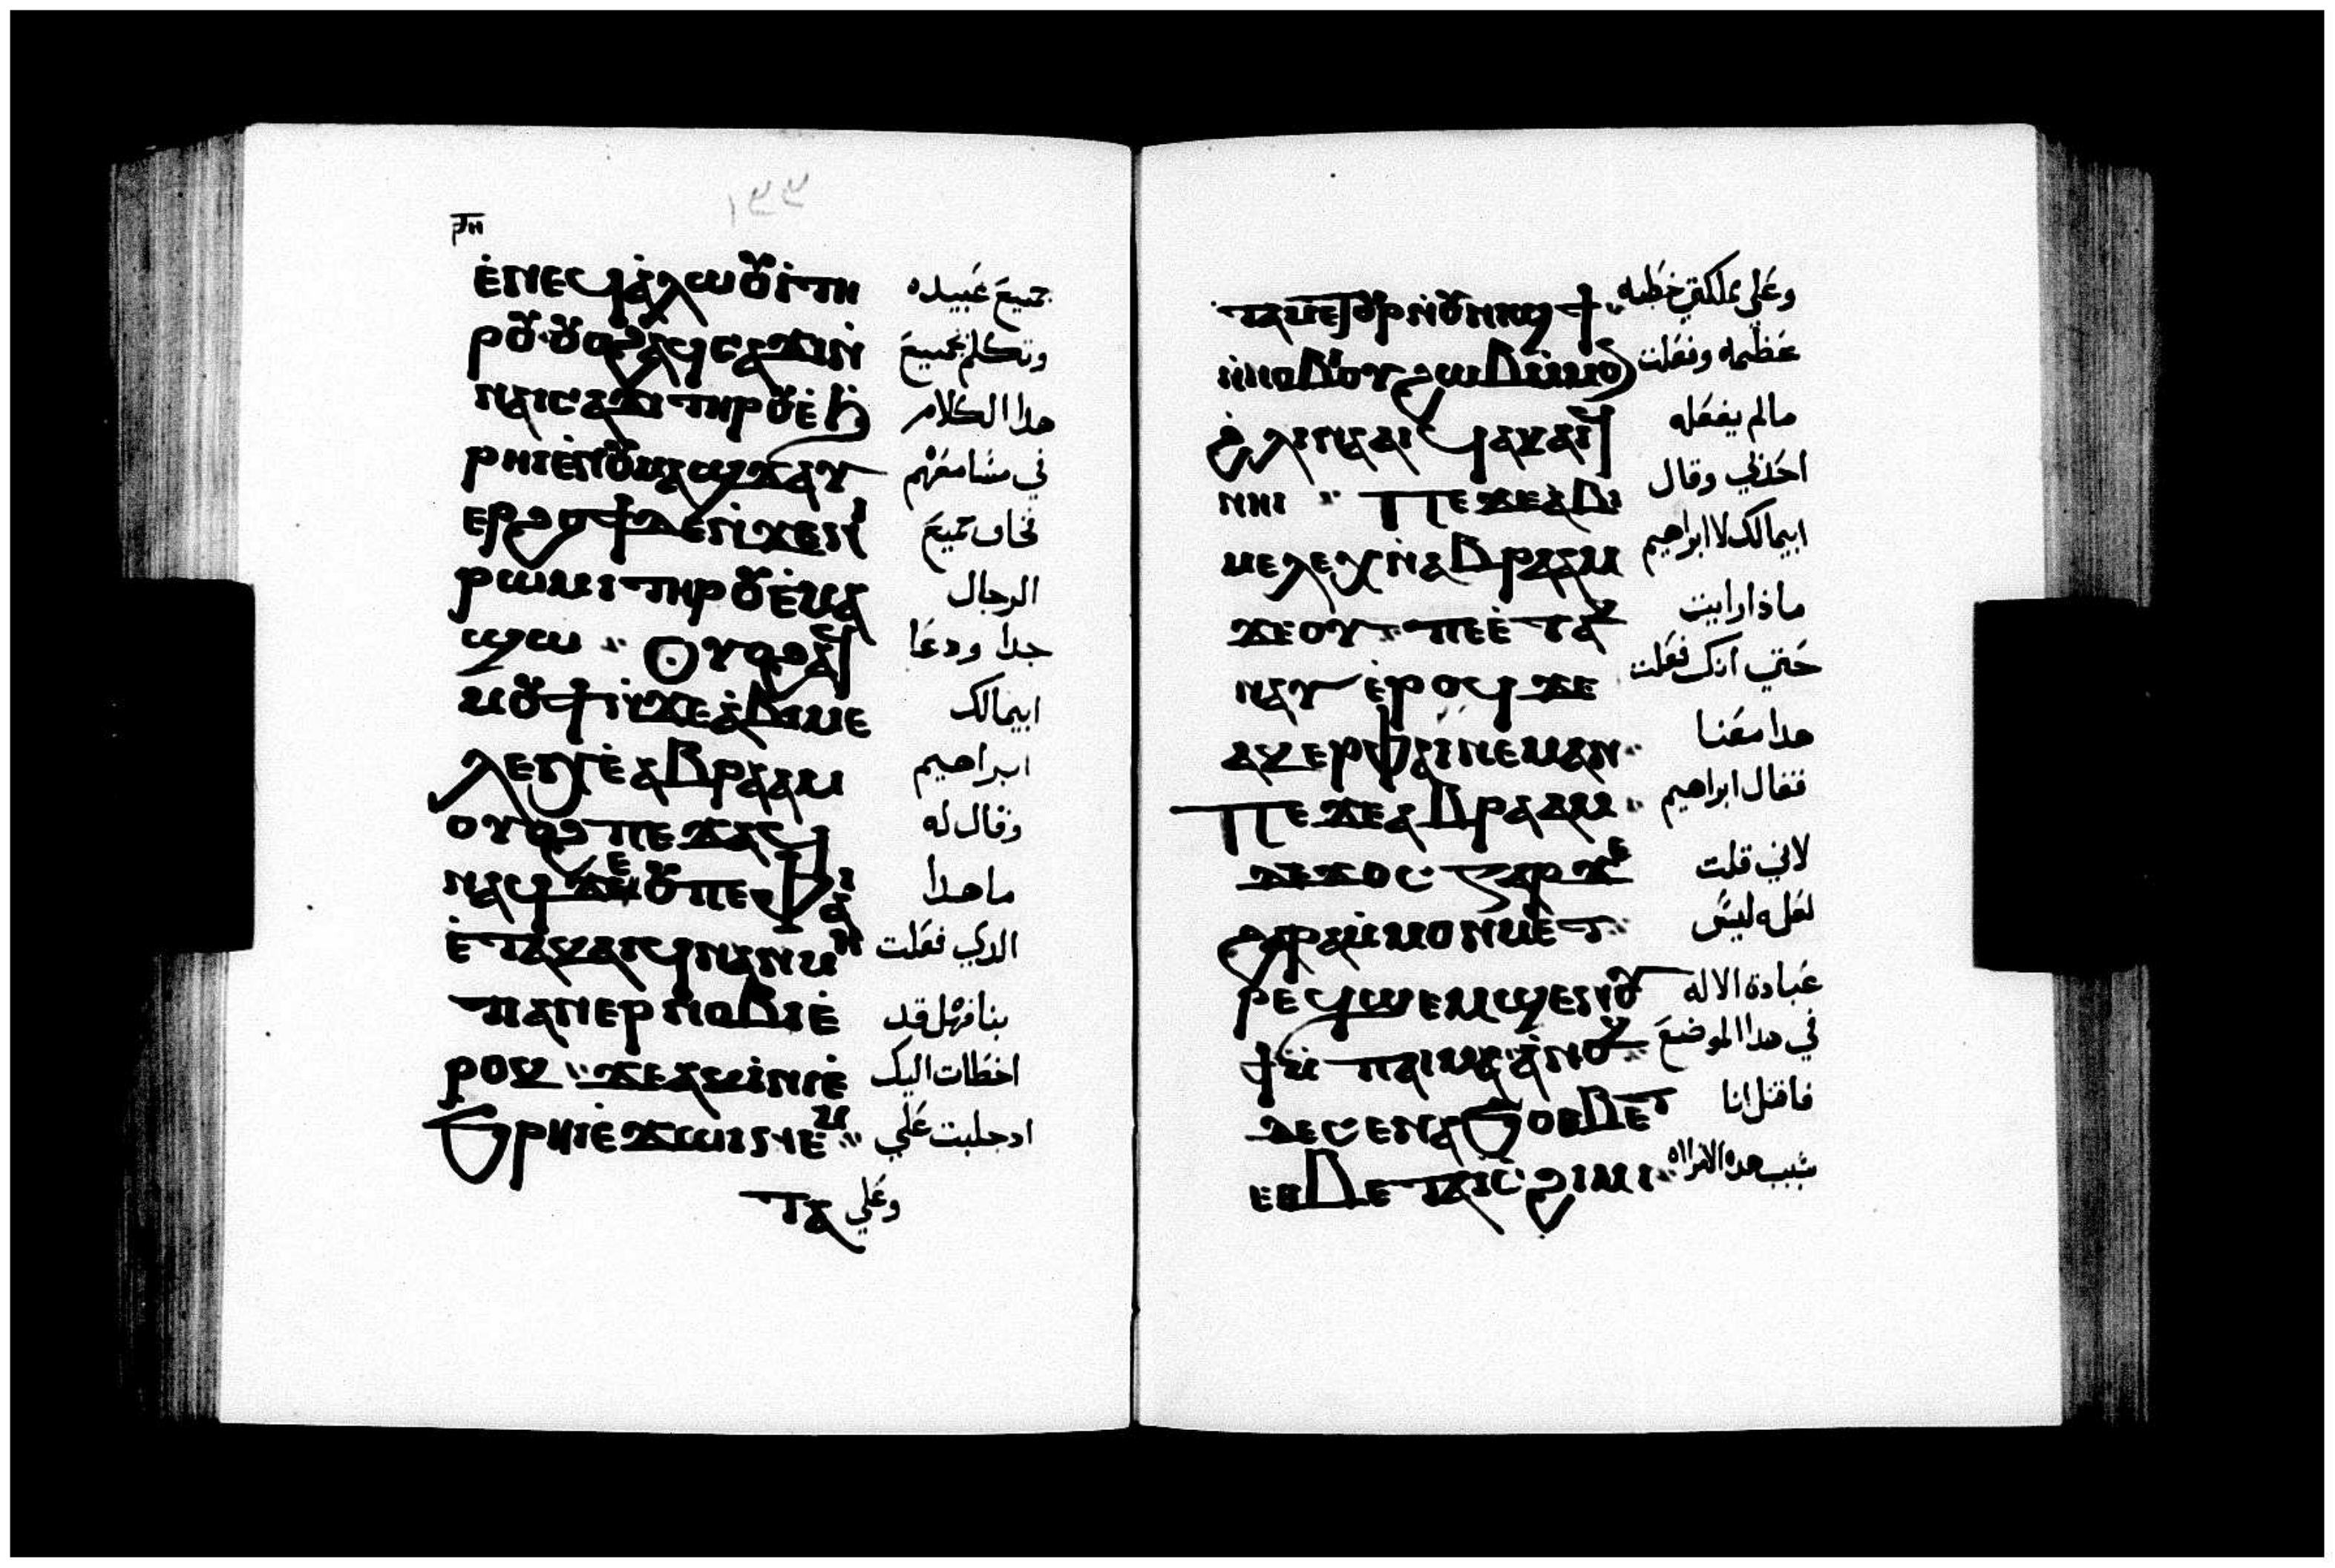 ⲣⲛ
١٣٣
ⲉ̀ⲛⲉϥⲁ̀ⲗⲱⲟⲩⲓ̀ⲧⲏ جميع عبيده
ⲣⲟⲩ· ⲟⲩⲟϩⲁϥⲥⲁϫⲓⲛ̀ وتكلم بجميع
ⲛⲁⲓⲥⲁϫⲓ ⲧⲏⲣⲟⲩⲉ̀ϧ هدا الكلام
ⲣⲏⲓⲉ̀ⲛⲟⲩⲙⲁϣϫⲁⲩ في مسامعهم
ⲉⲣϩⲟϯⲇⲉⲛ̀ϫⲉⲛⲓ فخاف جميع
ⲣⲱⲙⲓ ⲧⲏⲣⲟⲩⲉ̀ⲙⲁ الرجال
ϣⲱ ⲟⲩⲟϩⲁϥ جدا ودعا
ⲙⲟⲩϯⲛ̀ϫⲉⲁ̀ⲃⲓⲙⲉ ابيمالك
ⲗⲉⲭⲉ̀ⲁⲃⲣⲁⲁⲙ ابراهيم
ⲟⲩⲟϩ ⲡⲉϫⲁϥ وقال له
ⲛⲁϥ ϫⲉⲟⲩⲡⲉⲫⲁⲓ ما هدا
ⲉ̀ⲧⲁⲕⲁⲓϥⲛⲁⲛⲙⲏ الدي فعلت
ⲡⲁⲛⲉⲣⲛⲟⲃⲓⲉ̀ بنا فهل قد
ⲣⲟⲕ ϫⲉⲁⲕⲓ̀ⲛⲓⲉ̀ اخطات اليك
ϩⲣⲏⲓⲉ̀ϫⲱⲓⲛⲉⲙ ادجلبت علي
ⲧⲁ وعلي
ⲧⲁⲙⲉⲧⲟⲩⲣⲟⲛ̀ⲟⲩⲛⲓϣϯ وعلي مملكتي خطيه
ⲛ̀ⲛⲟⲃⲓ ⲟⲩϩⲱⲃⲙ̀ⲙⲟⲛ عظيمه وفعلت
ϩ̀ⲗⲓⲛⲁⲁⲓϥ ⲁⲕⲁⲓϥ مالم يفعله
ⲛⲏⲓ ⲡⲉϫⲉⲁ̀ⲃⲓ احدلي وقال
ⲙⲉⲗⲉⲭⲛ̀ⲁⲃⲣⲁⲁⲙ ابيمالك لابراهيم
ϫⲉⲟⲩ ⲡⲉⲉ̀ⲧⲁⲕ ماذا رايت
ⲛⲁⲩⲉ̀ⲣⲟϥ ϫⲉ حتي انك فعلت
ⲁⲕⲉⲣⲫⲁⲓⲛⲉⲙⲁⲛ هدا معنا
ⲡⲉϫⲉⲁⲃⲣⲁⲁⲙ فقال ابراهيم
ϫⲉϫⲟⲥ ⲅⲁⲣϫⲉ لاني قلت
ϩⲁⲣⲁⲙ̀ⲙⲟⲛⲙⲉⲧ لعله ليس
ⲣⲉϥϣⲉⲙϣⲉⲛⲟⲩ عبادة الاله
ϯϧⲉⲛ ⲡⲁⲓⲙⲁⲁ̀ⲛⲟⲕ في هدا الموضع
ⲇⲉⲥⲉⲛⲁϧⲟⲑⲃⲉⲧ فاقتل انا
ⲉⲑⲃⲉⲧⲁⲓⲥϩⲓⲙⲓ بسبب هده الامراه